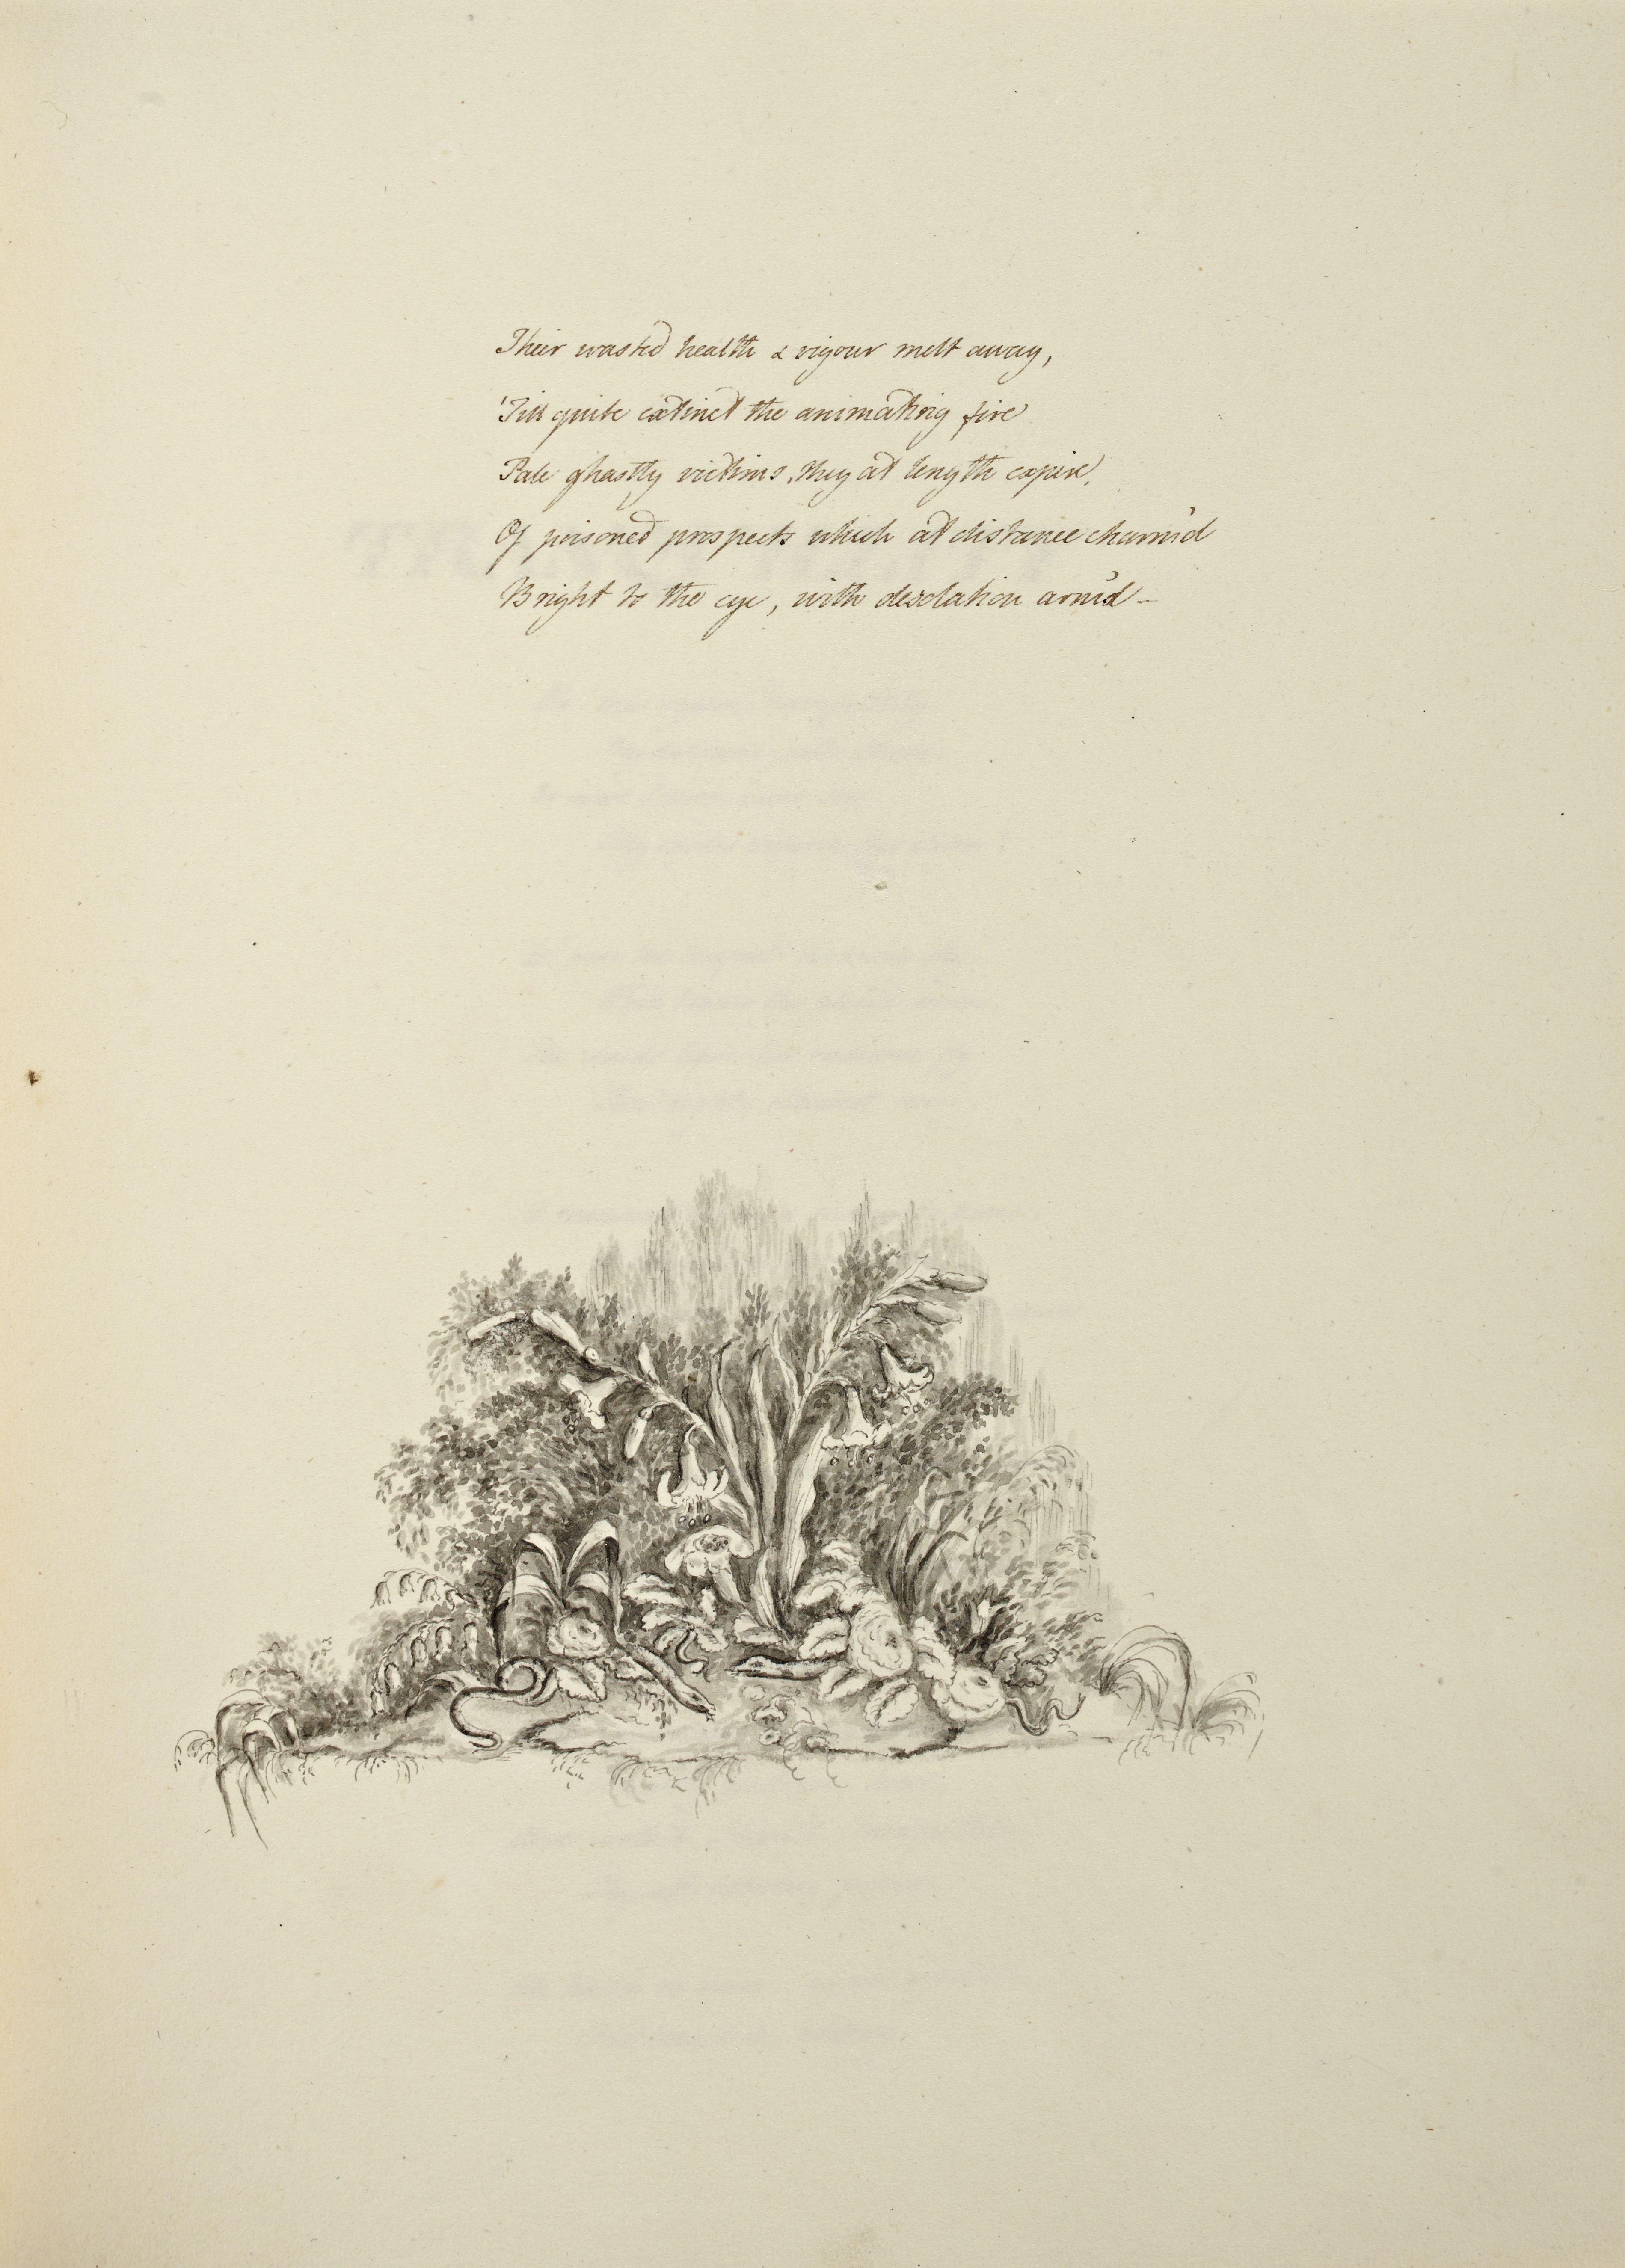 Their wasted health & vigour melt away,
'Till quite extinct the animating fire
Pale ghastly victims, they at length expire,
Of poisoned prospects which at distance charm'd
Bright to the eye, with desolation arm'd –